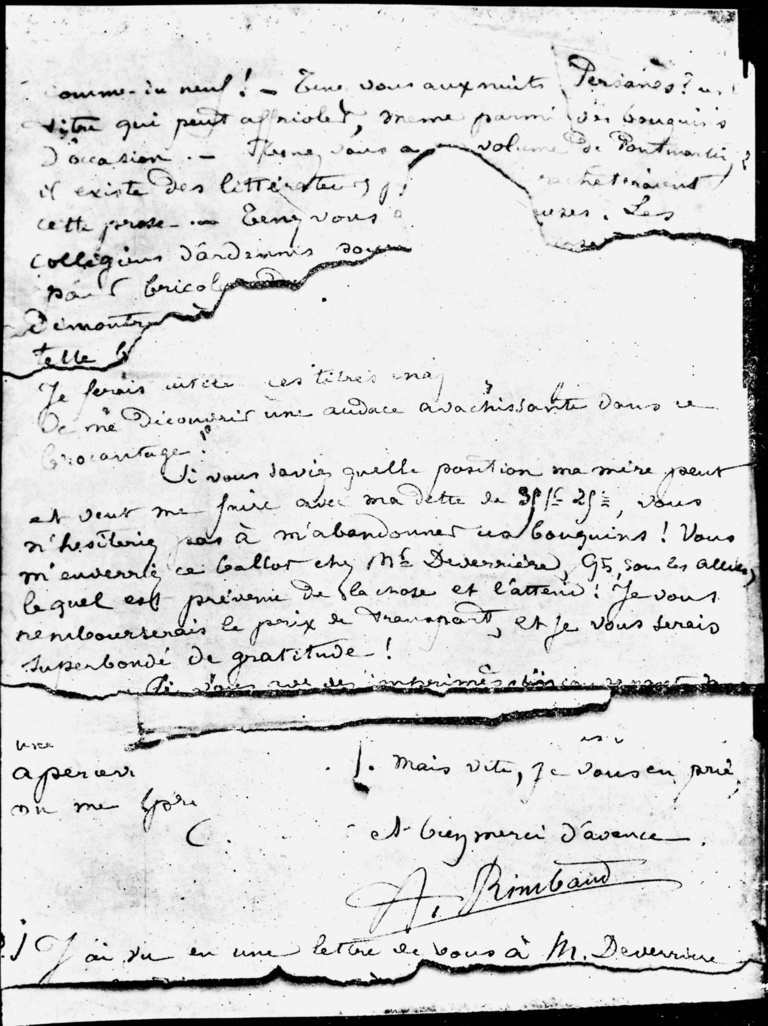 comme du neuf ! — Tenez vous aux nuits Persanes ? un
titre qui peut affrioler, même parmi des bouquins
d'occasion. — Tenez vous a volume de Pontmartin ?
il existe des littérateurs rachèteraient
cette prose. — Tenez vous Les
collégiens d'Ardennes
pour bricol
Démontr
telle
Je ferais ces titres
de me découvrir une audace avachissante dans ce
brocantage !
Si vous saviez quelle position ma mère peut
et veut me faire avec ma dette de 35 fr 25 c, vous
n'hésiteriez pas à m'abandonner ces bouquins ! Vous
m'enverriez ce ballot chez Mr Deverrière, 95, sous les Allées,
lequel est prévenu de la chose et l'attend ! Je vous
rembourserais le prix de transport, et je vous serais
superbondé de gratitude !
Si vous des imprimés
apercev . Mais vite, je vous en prie,
me
C. et bien merci d'avance.
A. Rimbaud
J'ai vu en une lettre de vous à M. Deverrière